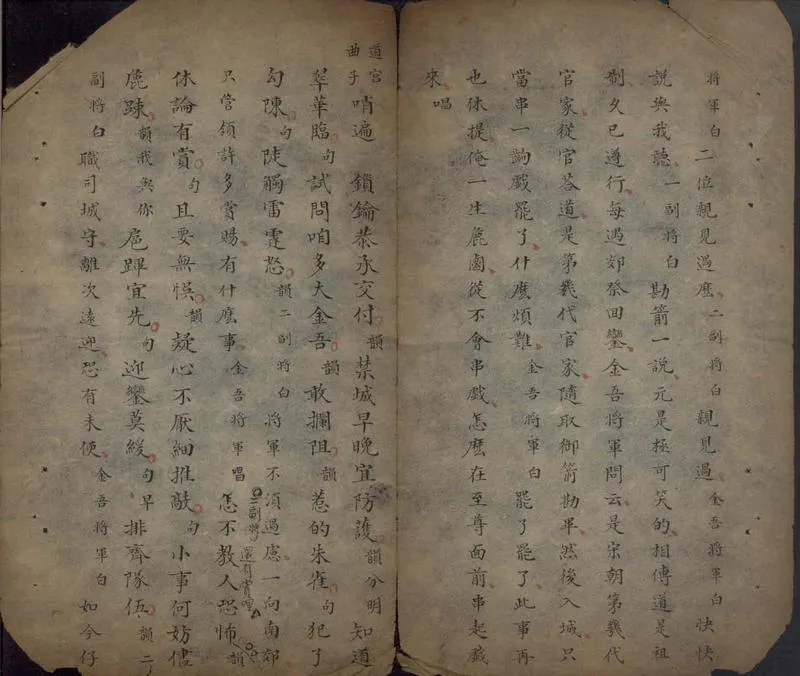 將軍白二位親見過麽二副將白親見過金吾將軍白快快
說與我聽一副將白勘箭一說元是極可笑的相傳道是祖
制久已遵行每遇郊祭回鑾金吾將軍問云是宋朝第幾代
官家從官荅道是第幾代官家隨取御箭勘畢然後入城只
當串一齣戲罷了什麽煩難金吾將軍白罷了罷了此事再
也休提俺一生麄鹵從不會串戲怎麽在至尊面前串起戲
來唱
道宮
曲子哨遍 鎖鑰恭承交付韻禁城早晚宜防護韻分明知道
翠華臨句試問咱多大金吾韻敢攔阻韻惹的朱雀句犯了
勾陳句陡觸雷霆怒韻二副將白將軍不須過慮一向南郊
只管領許多賞賜有什麽事金吾將軍唱怎不教人恐怖韻
二副將白還有賞哩
休論有賞句且要無悞韻凝心不厭細推敲句小事何妨儘
麄踈韻我與你扈蹕宜先句迎鑾莫緩句早排齊隊伍韻二
副將白職司城守離次遠迎恐有未便金吾將軍白如今仔